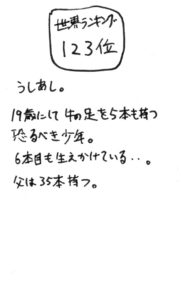 世界ランキング
123位
うしあし。
19歳にして牛の足を5本も持つ
恐るべき少年。
6本目も生えかけている・・。
父は35本持つ。